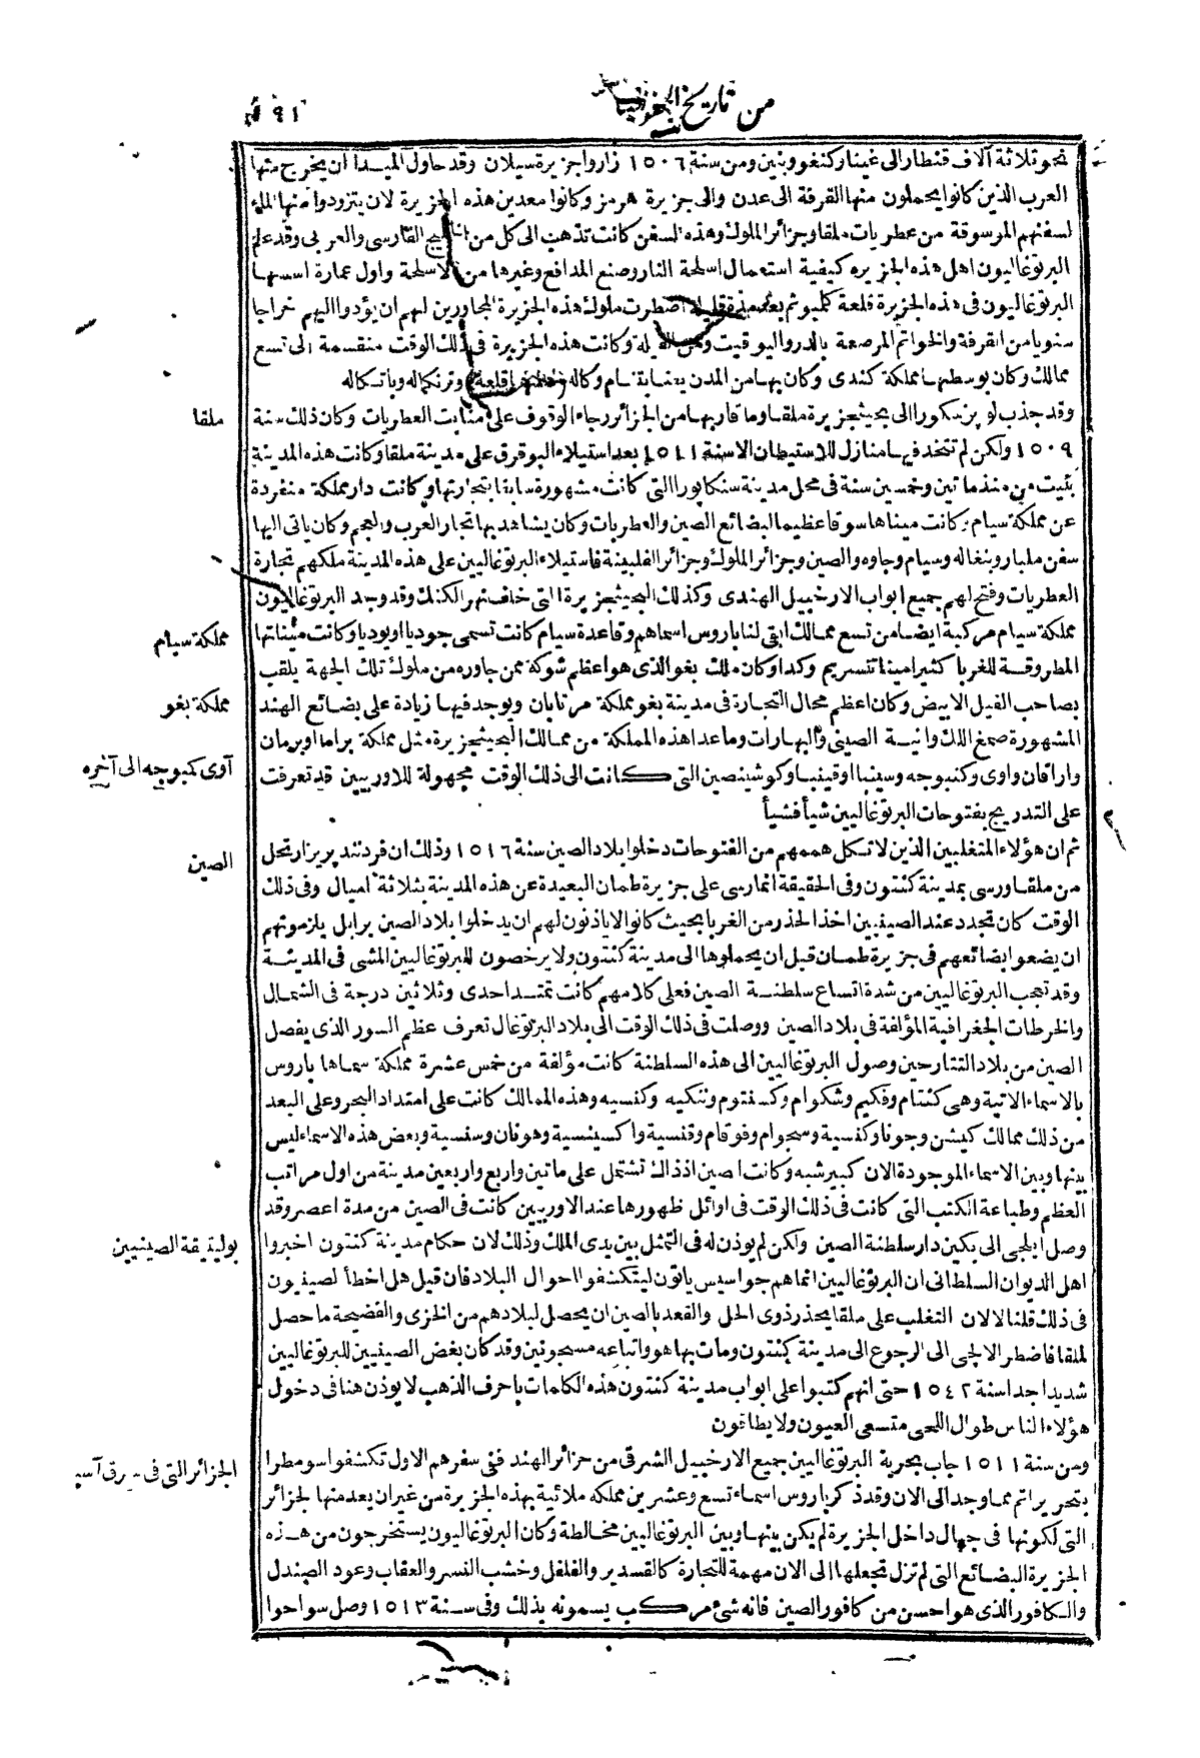 من تاريخ الجغرافيا
٩١
نحو ثلاثة آلاف قنطار الى غينا وكنغو وبنين ومن سنة ١٥٠٦ زاروا جزيرة سيلان وقد حاول الميدا ان يخرج منها
العرب الذين كانوا يحملون منها القرفة الى عدن والى جزيرة هرمز وكانوا معدين هذه الجزيرة لان يتزودوا منها الماء
لسفنهم الموسوقة من عطريات ملقا وجزائر الملوك وهذه السفن كانت تذهب الى كل من الخليج الفارسى والعربى وقد علم
البرتوغاليون اهل هذه الجزيره كيفية استعمال اسلحة النار وصنع المدافع وغيرها من الاسلحة واول عمارة اسسها
البرتوغاليون فى هذه الجزيرة قلعة كلمبو ثم بعد مدة قليلة اضطرت ملوك هذه الجزيرة المجاورين لهم ان يؤدوا اليهم خراجا
سنويا من القرفة والخواتم المرصعة بالدر واليوقيت ومن الفيلة وكانت هذه الجزيرة فى ذلك الوقت منقسمة الى تسع
ممالك وكان بوسطها مملكة كندى وكان بها من المدن يفنابتام وكاله وترنكماله وباتكاله
ملقا
وقد جذب لوبز سكورا الى بحيثجزيرة ملقا وما قاربها من الجزائر رجاء الوقوف على منابت العطريات وكان ذلك سنة
١٥٠٩ ولكن لم تتخذ فيها منازل للاستيطان الا سنة ١٥١١ بعد استيلاء البوقرق على مدينة ملقا وكانت هذه المدينة
بنيت من منذ ماتين وخمسين سنة فى محل مدينة سنكاپورا التى كانت مشهورة سابقا بتجارتها وكانت دار مملكة منفردة
عن مملكة سيام وكانت ميناها سوقا عظيما لبضائع الصين والعطريات وكان يشاهد بها تجار العرب والعجم وكان ياتى اليها
سفن مليار وبنغاله وسيام وجاوه والصين وجزائر الملوك وجزائر الفلبينة فاستيلاء البرتوغاليين على هذه المدينة ملكهم تجارة
العطريات وفتح لهم جميع ابواب الارخبيل الهندى وكذلك البحيثجزيرة التى خلف نهر الكنك وقد وجد البرتوغاليون
مملكة سيام
مملكة سيام مركبة ايضا من تسع ممالك ابقى لنا باروس اسماهم وقاعدة سيام كانت تسمى جوديا اويوديا وكانت مئيناتها
المطروقة للغربا كثيرا مينا تنسريم وكدا وكان ملك بغو الذى هو اعظم شوكة ممن جاوره من ملوك تلك الجهة يلقب
مملكة بغو
بصاحب الفيل الابيض وكان اعظم محال التجارة فى مدينة بغو مملكة مرتابان ويوجد فيها زيادة على بضائع الهند
المشهورة صمغ اللك وانية الصينى والبهارات وما عدا هذه المملكة من ممالك البحيثجزيرة مثل مملكة براما او برمان
آوى كمبوجه الى آخره
واراقان واوى وكنبوجه وسينبا او قينبا وكوشينصين التى كانت الى ذلك الوقت مجهولة للاوربيين قد تعرفت
على التدريج بفتوحات البرتوغاليين شيأ فشيأ
الصين
ثم ان هؤلاء المتغلبين الذين لا تكل هممهم من الفتوحات دخلوا بلاد الصين سنة ١٥١٦ وذلك ان فردنند پريز ارتحل
من ملقا ورسى بمدينة كنتون وفى الحقيقة انما رسى على جزيرة طمان البعيدة عن هذه المدينة بثلاثة اميال وفى ذلك
الوقت كان تجدد عند الصينيين اخذ الحذر من الغربا بحيث كانوا لا ياذنون لهم ان يدخلوا بلاد الصين برا بل يلزمونهم
ان يضعوا بضائعهم فى جزيرة طمان قبل ان يحملوها الى مدينة كنتون ولا يرخصون للبرتوغاليين المشى فى المدينة
وقد تعجب البرتوغاليين من شدة اتساع سلطنة الصين فعلى كلامهم كانت تمتد احدى وثلاثين درجة فى الشمال
والخرطات الجغرافية المؤلفة فى بلاد الصين ووصلت فى ذلك الوقت الى بلاد البرتوغال تعرف عظم السور الذى يفصل
الصين من بلاد التتار حين وصول البرتوغاليين الى هذه السلطنة كانت مؤلفة من خمس عشرة مملكة سماها باروس
بالاسماء الاتية وهى كنتام وفكيم وشكوام وكسنتوم وننكيه وكنسيه وهذه الممالك كانت على امتداد البحر وعلى البعد
من ذلك ممالك كيشن وجونا وكنسية وسجوام وفوقام وقنسية واكسينسية وهونان وسنسية وبعض هذه الاسماء ليس
بينها وبين الاسماء الموجودة الان كبير شبه وكانت الصين اذ ذاك تشتمل على ماتين واربع واربعين مدينة من اول مراتب
العظم وطباعة الكتب التى كانت فى ذلك الوقت فى اوائل ظهورها عند الاوربيين كانت فى الصين من مدة اعصر وقد
بوليتيقة الصينيين
وصل ايلچى الى بكين دار سلطنة الصين ولكن لم يوذن له فى التمثل بين يدى الملك وذلك لان حكام مدينة كنتون اخبروا
اهل الديوان السلطانى ان البرتوغاليين انما هم جواسيس ياتون ليتكشفوا احوال البلاد فان قيل هل اخطأ لصينيون
فى ذلك قلنا لا لان التغلب على ملقا يحذر ذوى الحل والقعد بالصين ان يحصل لبلادهم من الخزى والفضيحة ما حصل
لملقا فاضطر الالچى الى الرجوع الى مدينة كنتون ومات بها هو واتباعه مسجونين وقد كان بغض الصينيين للبرتوغاليين
شديدا جدا سنة ١٥٤٢ حتى انهم كتبوا على ابواب مدينة كنتون هذه الكلمات باحرف الذهب لا يوذن هنا فى دخول
هؤلاء الناس طوال اللحى متسعى العيون ولا يطاقون
الجزائر التى فى شرق آسيا
ومن سنة ١٥١١ جاب بحرية البرتوغاليين جميع الارخبيل الشرقى من جزائر الهند ففى سفرهم الاول تكشفوا سومطرا
بتحرير اتم مما وجد الى الان وقد ذكر باروس اسماء تسع وعشرين مملكه ملائية بهذه الجزيرة من غير ان يعد منها لجزائر
التى لكونها فى جهال داخل الجزيرة لم يكن بينها وبين البرتوغاليين مخالطة وكان البرتوغاليون يستخرجون من هذه
الجزيرة البضائع التى لم تزل تجعلها الى الان مهمة للتجارة كالقسدير والفلفل وخشب النسر والعقاب وعود الصندل
والكافور الذى هو احسن من كافور الصين فانه شئ مركب يسمونه بذلك وفى سنة ١٥١٣ وصل سواحوا